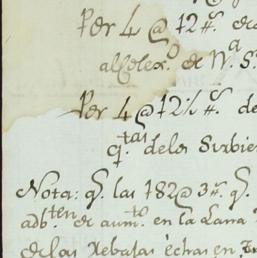 Per 4 @ 12 ℔. de
al Colex.º de N.ª S.
Per 4 @ 12½ ℔. de
q.tas delos Sirvien
Nota: q.e las 182@ 3 ℔. q.e
adb.ten de aum.to en la Lana
de las Rebajas échas en